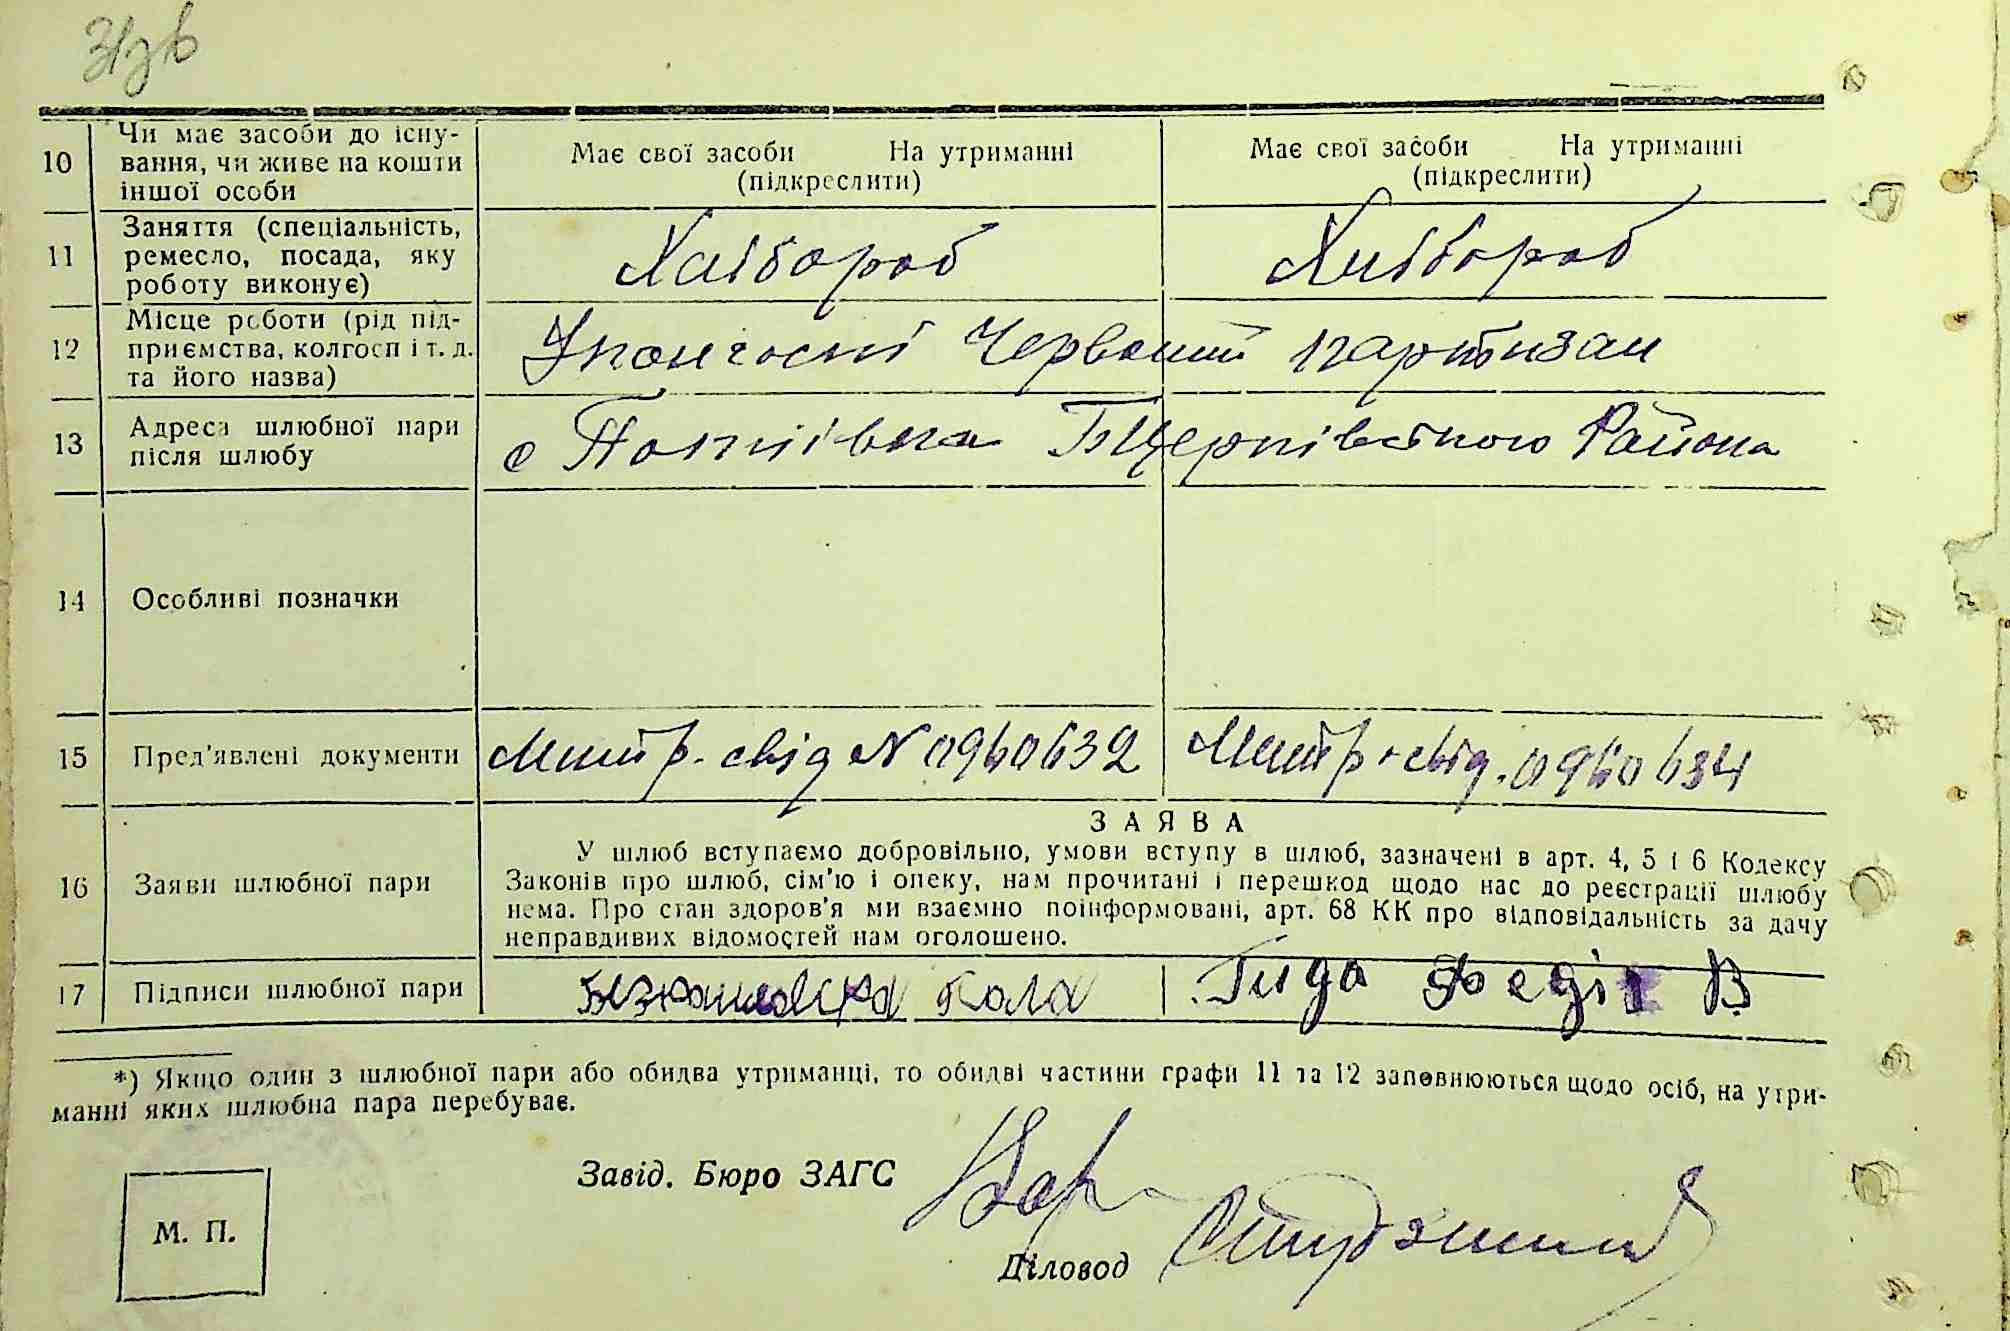 10
Чи має засоби до існу-
вання, чи живе на кошти
іншої особи
Має свої засоби На утриманні
(підкреслити)
Має свої засоби На утриманні
(підкреслити)
11
Заняття (спеціальність,
ремесло, посада, яку
роботу виконує)
Хлібороб
Хлібороб
12
Місце роботи (рід під-
приємства, колгосп і т. д.
та його назва)
У колгоспі Червоний партизан
13
Адреса шлюбної пари
після шлюбу
с Району
14
Особливі позначки
15
Пред'явлені документи
Метр. свід N 0960632
Метр. свід. 0960634
16
Заяви шлюбної пари
ЗАЯВА
У шлюб вступаємо добровільно, умови вступу в шлюб, зазначені в арт. 4, 5 і 6 Кодексу
Законів про шлюб, сім'ю і опеку, нам прочитані і перешкод щодо нас до реєстрації шлюбу
нема. Про стан здоров'я ми взаємно поінформовані, арт. 68 КК про відповідальність за дачу
неправдивих відомостей нам оголошено.
17
Підписи шлюбної пари
Гида Федір В
*) Якщо один з шлюбної пари або обидва утриманці, то обидві частини графи 11 та 12 заповнюються щодо осіб, на утри-
манні яких шлюбна пара перебуває.
Завід. Бюро ЗАГС
М. П.
Діловод